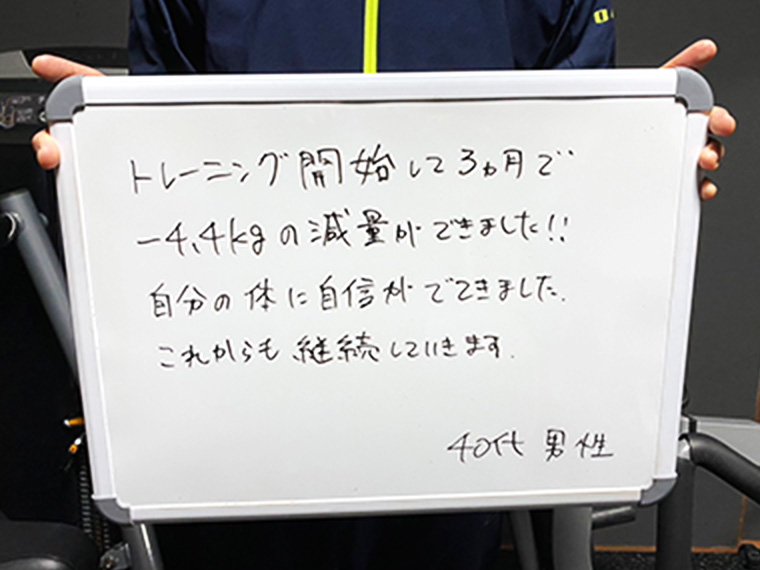 トレーニング開始して3ヵ月で
-4.4kgの減量ができました!!
自分の体に自信がでてきました.
これからも継続していきます.
40代 男性